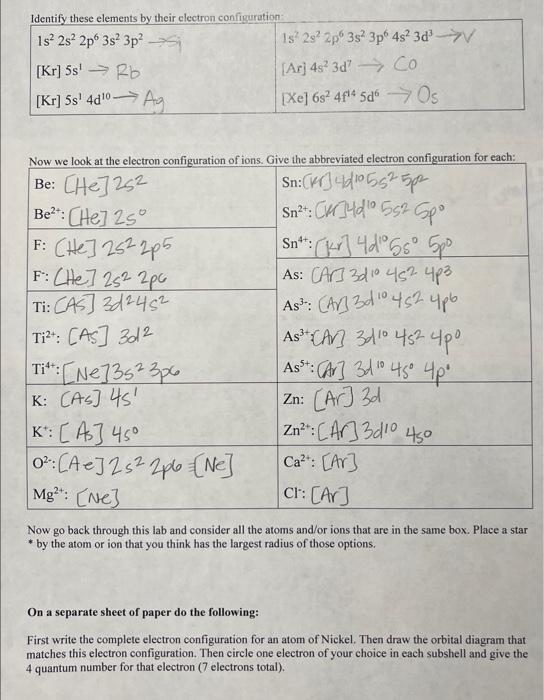 Identify these elements by their electron configuration:
1s² 2s² 2p⁶ 3s² 3p² → Si
1s² 2s² 2p⁶ 3s² 3p⁶ 4s² 3d³ → V
[Kr] 5s¹ → Rb
[Ar] 4s² 3d⁷ → Co
[Kr] 5s¹ 4d¹⁰ → Ag
[Xe] 6s² 4f¹⁴ 5d⁶ → Os
Now we look at the electron configuration of ions. Give the abbreviated electron configuration for each:
Be: [He] 2s²
Be²⁺: [He] 2s⁰
F: [He] 2s² 2p5
F⁻: [He] 2s² 2p6
Ti: [As] 3d²4s²
Ti²⁺: [As] 3d²
Ti⁴⁺: [Ne] 3s² 3p6
K: [As] 4s¹
K⁺: [As] 4s⁰
O²⁻: [Ae] 2s² 2p6 = [Ne]
Mg²⁺: [Ne]
Sn: [Kr] 4d¹⁰ 5s² 5p²
Sn²⁺: [Kr] 4d¹⁰ 5s² 5p⁰
Sn⁴⁺: [Kr] 4d¹⁰ 5s⁰ 5p⁰
As: [Ar] 3d¹⁰ 4s² 4p3
As³⁻: [Ar] 3d¹⁰ 4s2 4p6
As³⁺: [Ar] 3d¹⁰ 4s² 4p⁰
As⁵⁺: [Ar] 3d¹⁰ 4s⁰ 4p⁰
Zn: [Ar] 3d
Zn²⁺: [Ar] 3d10 4s0
Ca²⁺: [Ar]
Cl⁻: [Ar]
Now go back through this lab and consider all the atoms and/or ions that are in the same box. Place a star
* by the atom or ion that you think has the largest radius of those options.
On a separate sheet of paper do the following:
First write the complete electron configuration for an atom of Nickel. Then draw the orbital diagram that
matches this electron configuration. Then circle one electron of your choice in each subshell and give the
4 quantum number for that electron (7 electrons total).